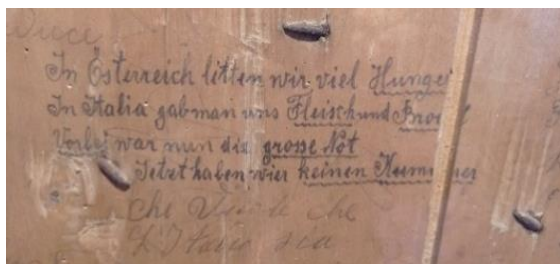 In Österreich litten wir viel Hunger
In Italia gab man uns Fleisch und Brod
Vorbei war nun die grosse Not
Jetzt haben wier keinen Kummer
che
che
L'Italia sia